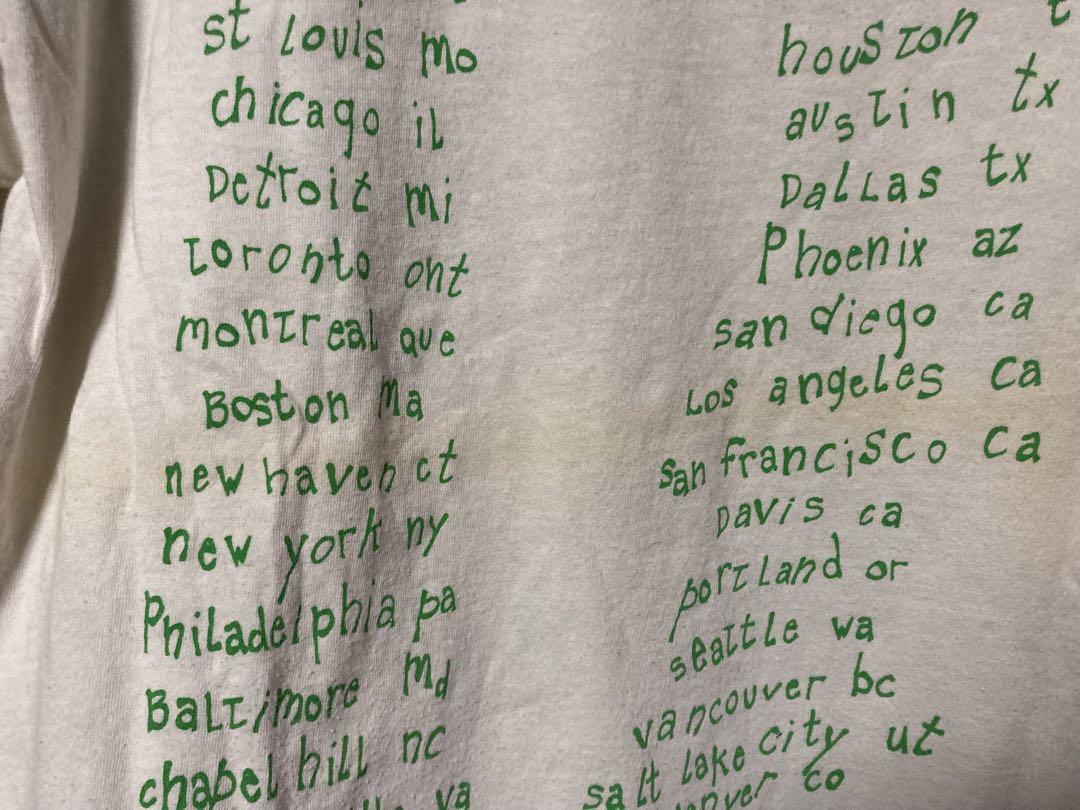 st louis mo
chicago il
Detroit mi
toronto ont
montreal que
Boston ma
new haven ct
new york ny
Philadelphia pa
Baltimore Md
chapel hill nc
va
houston t
austin tx
Dallas tx
Phoenix az
san diego ca
Los angeles ca
san francisco ca
Davis ca
portland or
seattle wa
vancouver bc
salt lake city ut
denver co